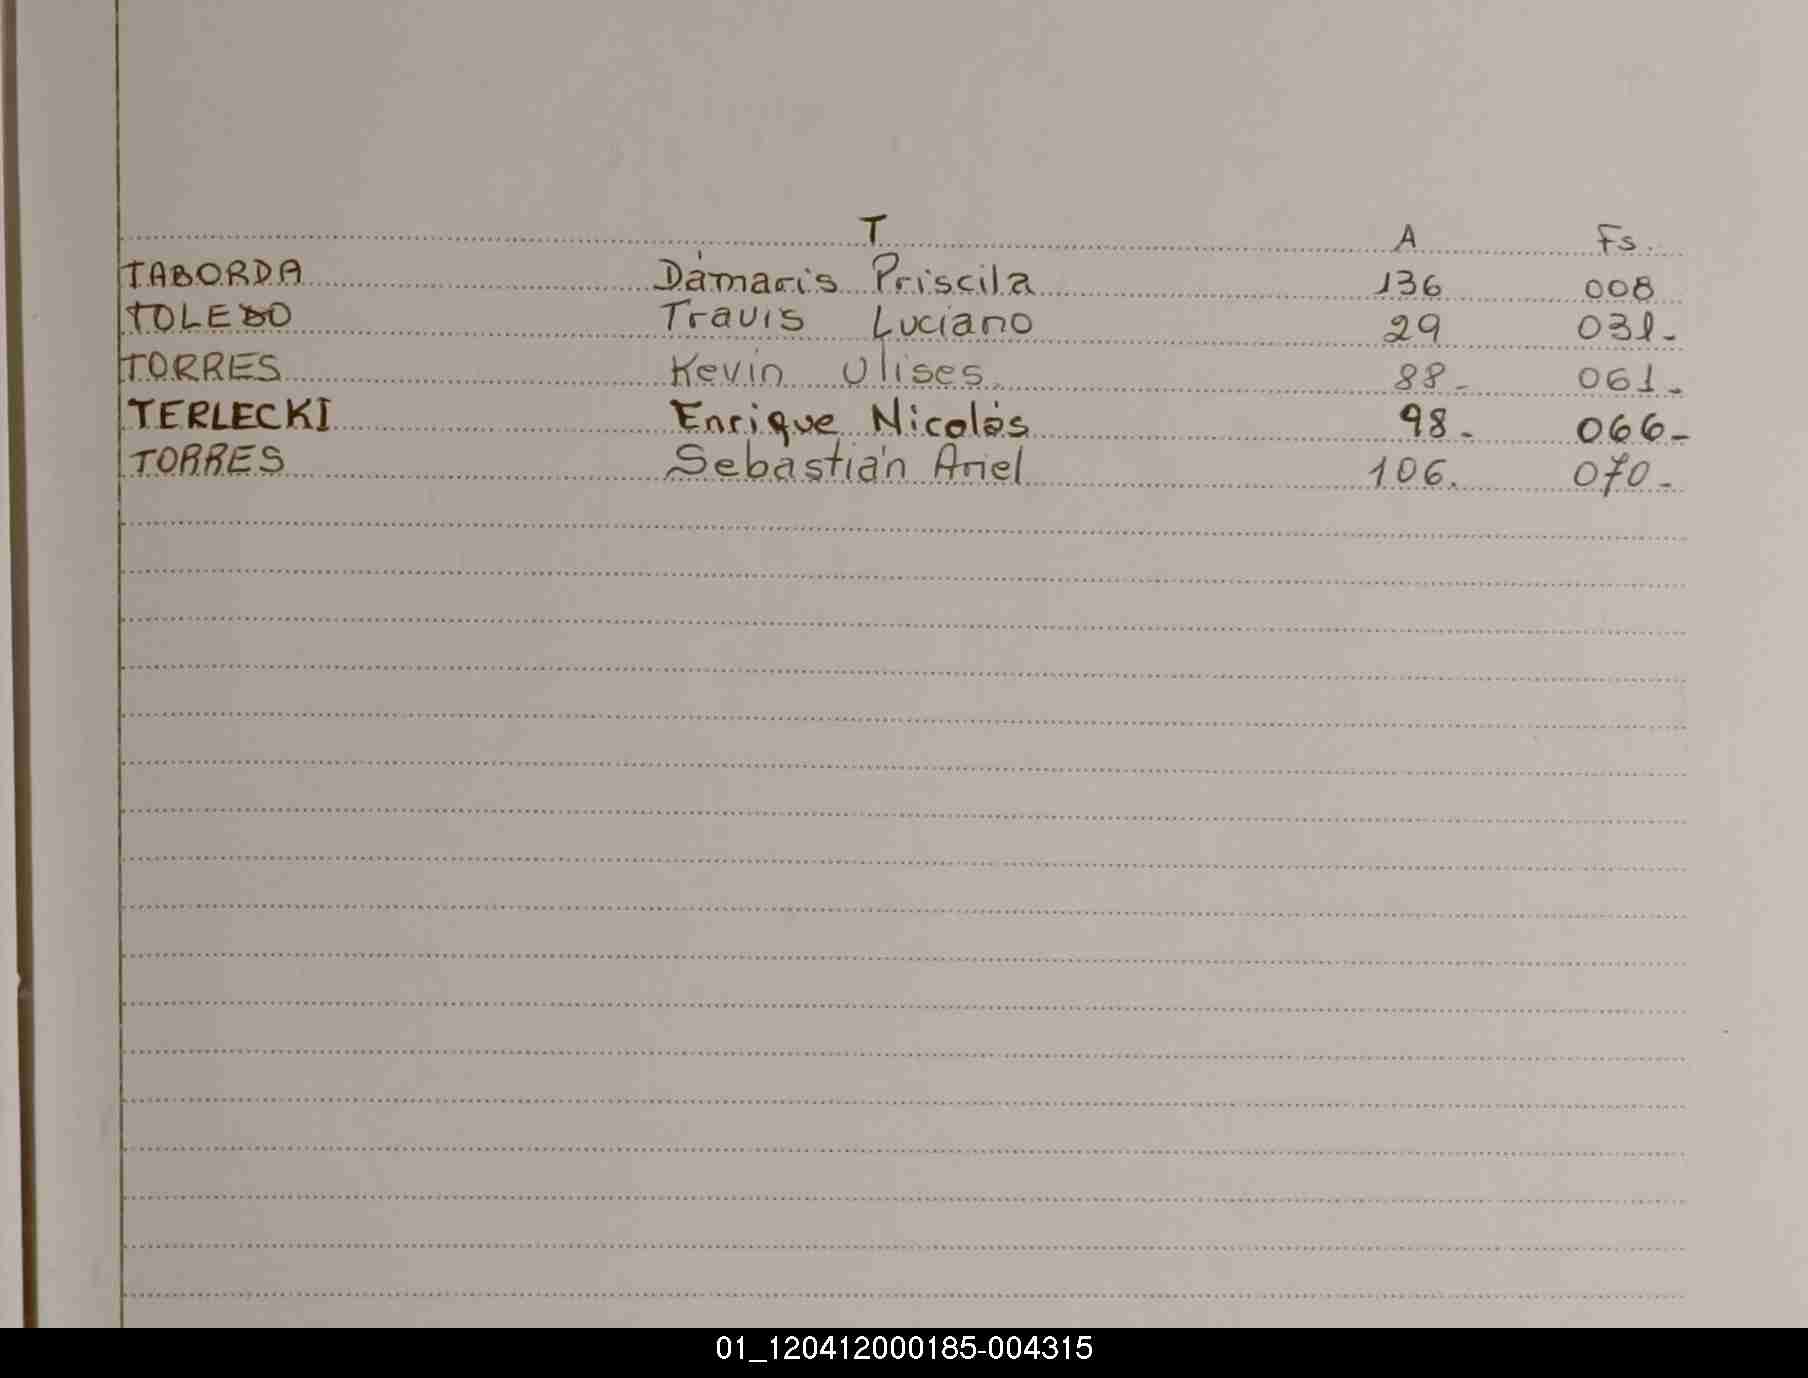 T A Fs.
TABORDA Dámaris Priscila 136 008
TOLEDO Travis Luciano 29 031-
TORRES Kevin Ulises 88- 061-
TERLECKI Enrique Nicolás 98- 066-
TORRES Sebastián Ariel 106. 070-
01_120412000185-004315